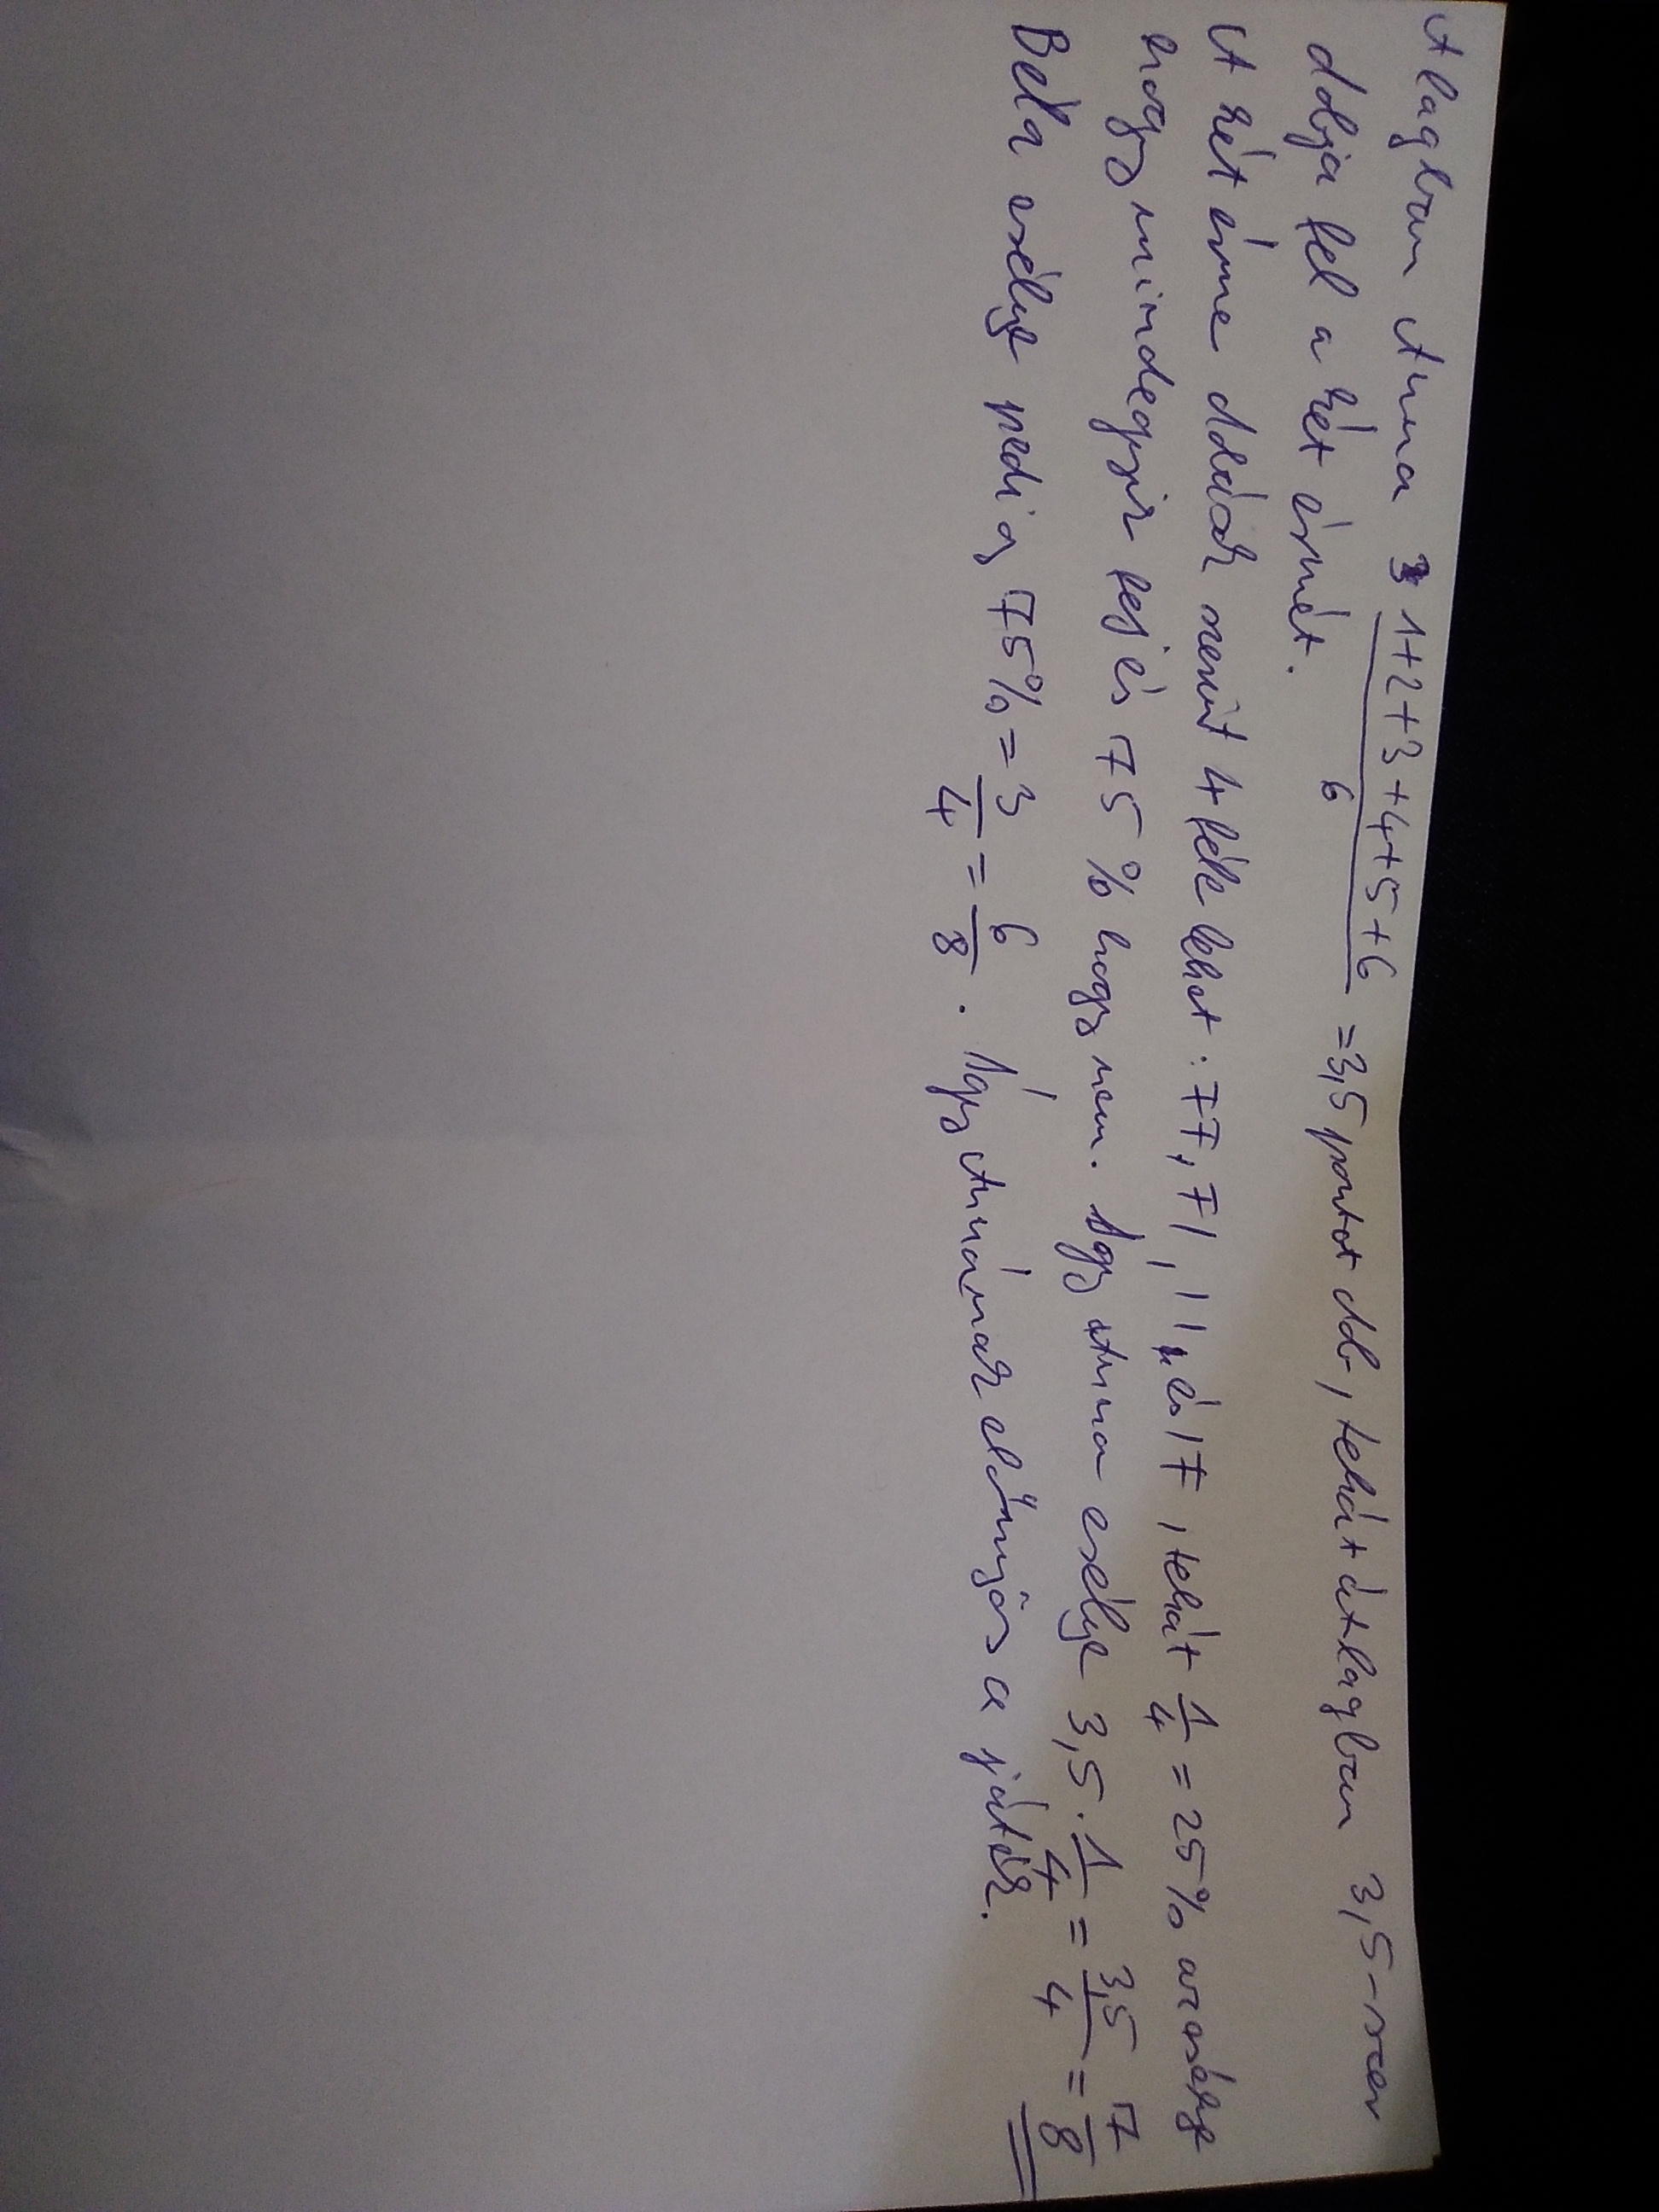 Átlagban Anna 1+2+3+4+5+6/6 = 3,5 pontot dob, tehát átlagban 3,5-szer
dobja fel a két érmét.
A két érme dobások szerint 4 féle lehet: FF, FI, II, és IF, tehát 1/4 = 25% az esélye
hogy mindegyik fej és 75% hogy nem. Így Anna esélye 3,5 · 1/4 = 3,5/4 = 7/8
Béla esélye pedig 75% = 3/4 = 6/8. Így Annának előnyös a játék.